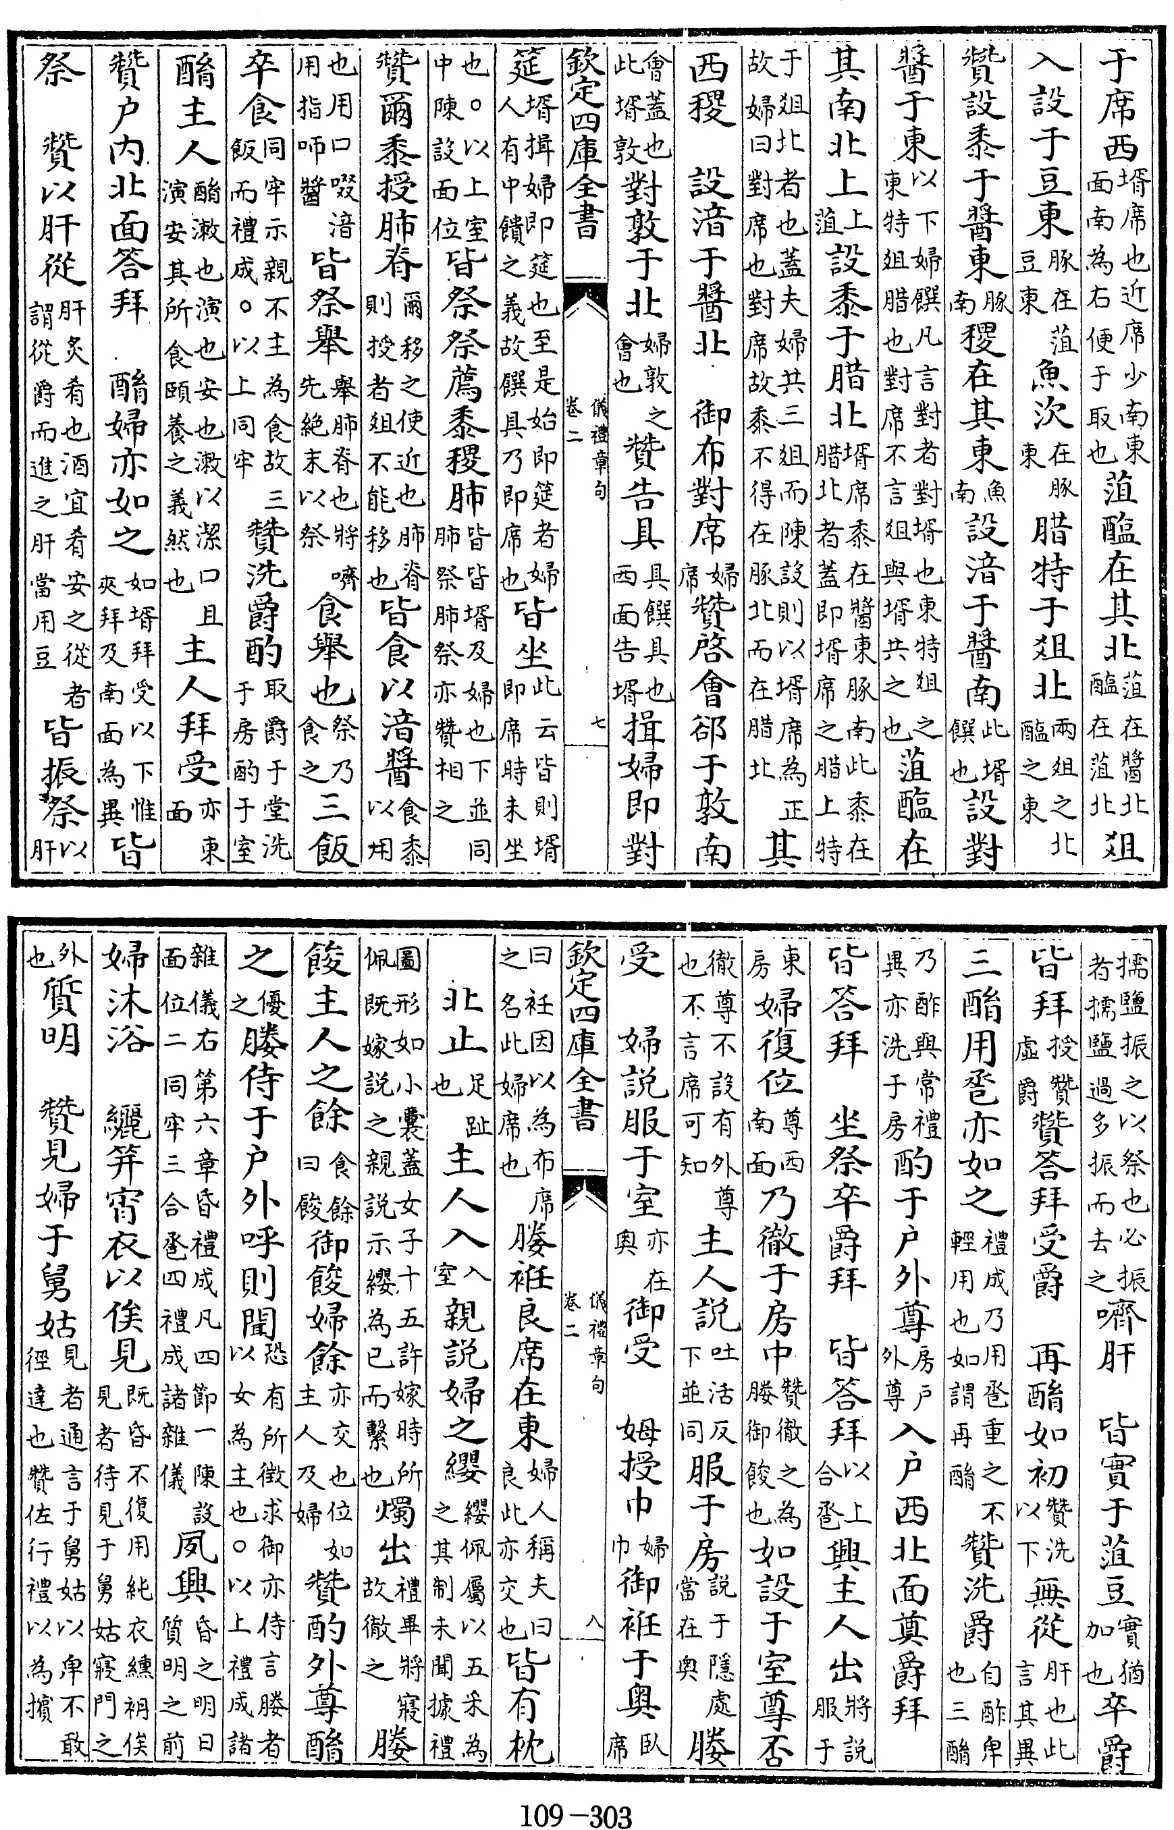 于席西壻席也近席少南東面南為右便于取也菹醢在其北菹在醬北醢在菹北俎
入設于豆東豚在菹豆東魚次在豚東腊特于俎北兩俎之北醢之東
贊設黍于醬東豚南稷在其東魚南設湆于醬南此壻饌也設對
醬于東以下婦饌凡言對者對壻也東特俎之東特俎腊也對席不言俎與壻共之也菹醢在
其南北上上菹設黍于腊北壻席黍在醬東豚南此黍在腊北者蓋即壻席之腊上特
于俎北者也蓋夫婦共三俎而陳設則以壻席為正故婦曰對席也對席故黍不得在豚北而在腊北其
西稷 設湆于醬北 御布對席婦席贊啓會郤于敦南
會蓋也此壻敦對敦于北婦敦之會也贊告具具饌具也西面告壻揖婦即對
欽定四庫全書 儀禮章句 卷二 七
筵壻揖婦即筵也至是始即筵者婦人有中饋之義故饌具乃即席也皆坐此云皆則壻即席時未坐
也○以上室中陳設面位皆祭祭薦黍稷肺皆皆壻及婦也下並同肺祭肺祭亦贊相之
贊爾黍授肺脊爾移之使近也肺脊則授者俎不能移也皆食以湆醬食黍以用
也用口啜湆用指咂醬皆祭舉舉肺脊也將嚌先絶末以祭食舉也祭乃食之三飯
卒食同牢示親不主為食故三飯而禮成○以上同牢贊洗爵酌取爵于堂洗于房酌于室
酳主人酳漱也演也安也漱以潔口且演安其所食頤養之義然也主人拜受亦東面
贊户内北面答拜 酳婦亦如之如壻拜受以下惟夾拜及南面為異皆
祭 贊以肝從肝炙肴也酒宜肴安之從者謂從爵而進之肝當用豆皆振祭以肝
擩鹽振之以祭也必振者擩鹽過多振而去之嚌肝 皆實于菹豆實猶加也卒爵
皆拜授贊虛爵贊答拜受爵 再酳如初贊洗以下無從肝也此言其異
三酳用卺亦如之禮成乃用卺重之不輕用也如謂再酳贊洗爵自酢卑也三酳
乃酢與常禮異亦洗于房酌于户外尊房户外尊入户西北面奠爵拜
皆答拜 坐祭卒爵拜 皆答拜以上合卺興主人出將說服于
東房婦復位尊西南面乃徹于房中贊徹之為媵御餕也如設于室尊否
徹尊不設有外尊也不言席可知主人說吐活反下並同服于房說于隱處當在奥媵
受 婦説服于室亦在奥御受 姆授巾婦巾御衽于奥臥席
欽定四庫全書 儀禮章句 卷二 八
曰衽因以為布席之名此婦席也媵衽良席在東婦人稱夫曰良此亦交也皆有枕
北止足趾也主人入入室親說婦之纓纓佩屬以五采為之其制未聞據禮
圖形如小囊蓋女子十五許嫁時所佩既嫁説之親説示纓為已而繫也燭出禮畢將寢故徹之媵
餕主人之餘食餘曰餕御餕婦餘亦交也位如主人及婦贊酌外尊酳
之優之媵侍于户外呼則聞恐有所徵求御亦侍言媵者以女為主也○以上禮成諸
雜儀右第六章昏禮成凡四節一陳設面位二同牢三合卺四禮成諸雜儀夙興昏之明日質明之前
婦沐浴 纚笄宵衣以俟見既昏不復用純衣纁袡俟見者待見于舅姑寢門之
外也質明 贊見婦于舅姑見者通言于舅姑以卑不敢徑達也贊佐行禮以為擯
109-303